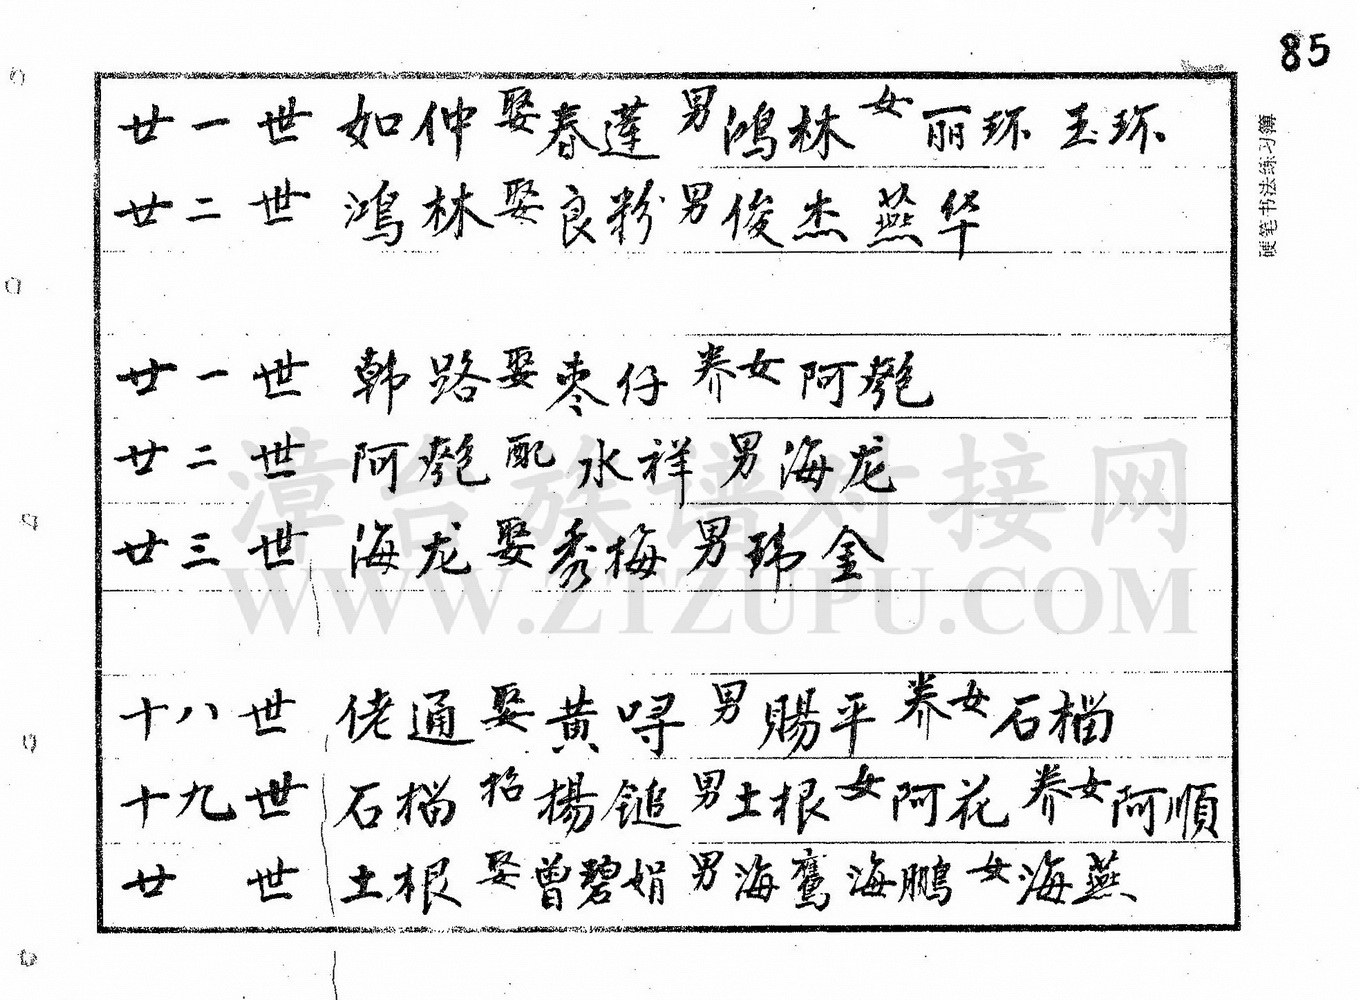 85
硬笔书法练习簿
廿一世 如仲 娶 春莲 男 鸿林 女 丽环 玉环
廿二世 鸿林 娶 良粉 男 俊杰 燕华
廿一世 韩路 娶 枣仔 养女 阿
廿二世 阿 配 水祥 男 海龙
廿三世 海龙 娶 秀梅 男 玮金
十八世 佬通 娶 黄 男 賜平 养女 石榴
十九世 石榴 招 楊鎚 男 土根 女 阿花 养女 阿順
廿世 土根 娶 曾碧娟 男 海鹰 海鹏 女 海燕
漳台族谱对接网
WWW.ZTZUPU.COM